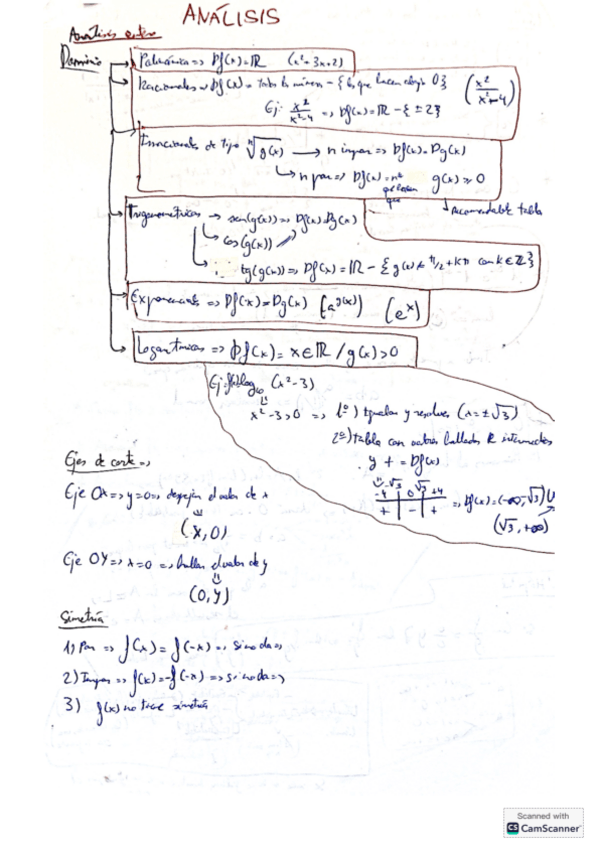 ANÁLISIS
Análisis entero
Dominio
Polinómica => Df(x)=ℝ (x²+3x+2)
Racionales => Df(x) = todos los números - {los que hacen abajo 0} (x²/x²-4)
Ej: x²/x²-4 => Df(x)=ℝ - {±2}
Irracionales de tipo ⁿ√g(x) → n impar => Df(x)=Dg(x)
↳ n par => Df(x) = nº que hacen que g(x) ≥ 0
↳ Recomendable tabla
Trigonométricas → sen(g(x)) => Df(x)=Dg(x)
↳ cos(g(x))
tg(g(x)) => Df(x)=ℝ - {g(x) ≠ π/2 + kπ con k∈ℤ}
Exponenciales => Df(x)=Dg(x) (a^g(x)) (e^x)
Logarítmicas => Df(x)= x∈ℝ / g(x)>0
Ej: log (x²-3)
x²-3>0 => 1º) Igualar y resolver (x=±√3)
2º) tabla con valores hallados e intermedios
y + = Df(x)
-4 -√3 0 √3 +4
+ - + => Df(x)=(-∞,-√3)U
(√3,+∞)
Ejes de corte =>
Eje OX => y=0 => despejar el valor de x
(x,0)
Eje OY => x=0 => hallar el valor de y
(0,y)
Simetría
1) Par => f(x) = f(-x) => si no da =>
2) Impar => f(x)=-f(-x) => si no da =>
3) f(x) no tiene simetría
Scanned with
CS CamScanner